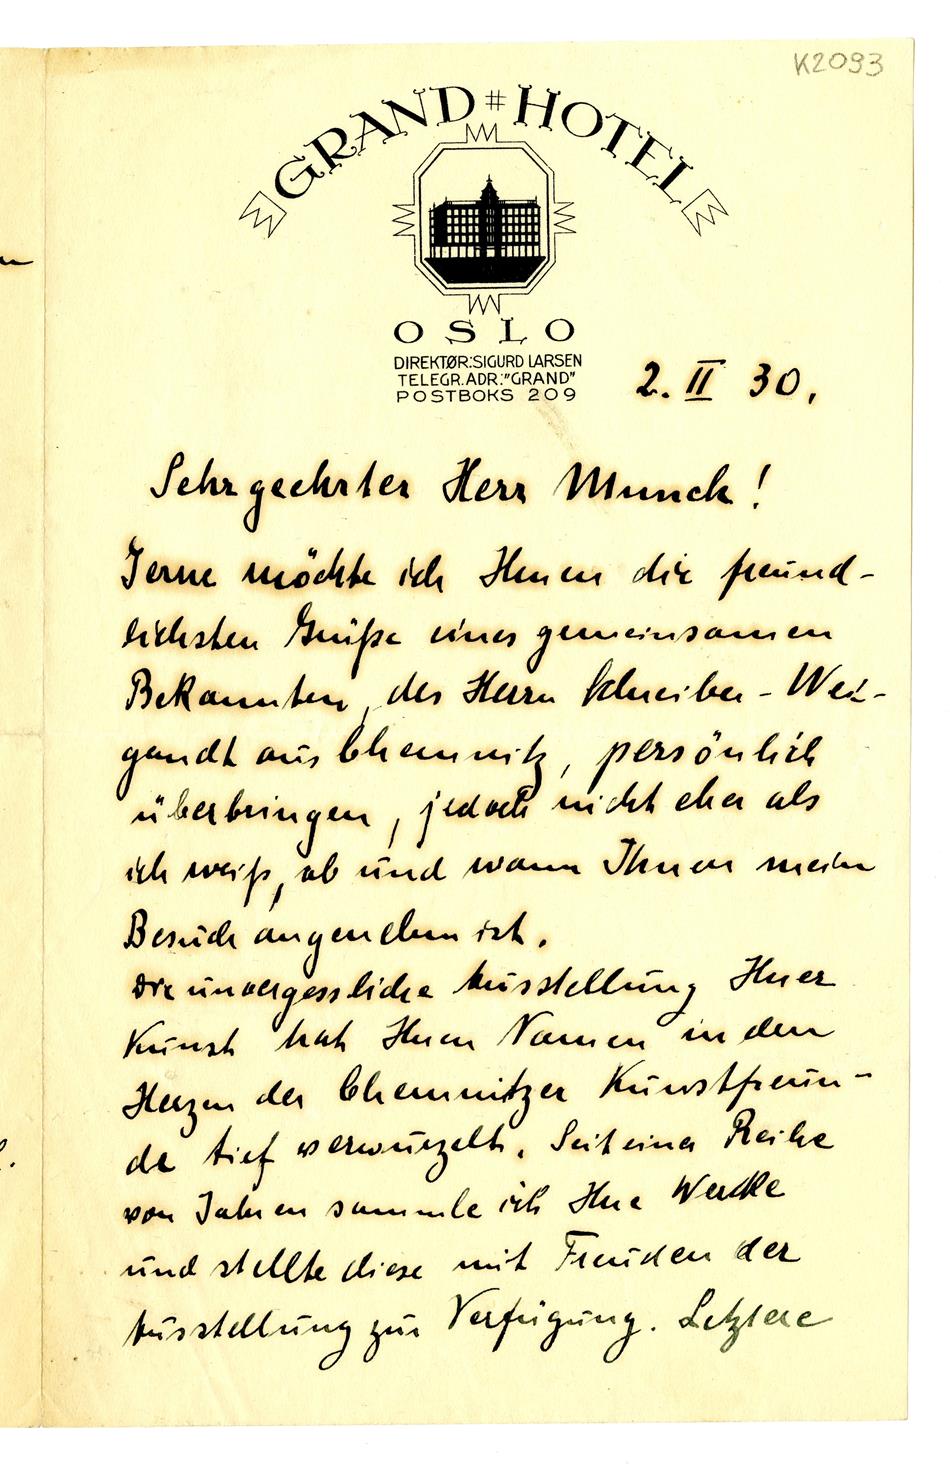 K2093
GRAND # HOTEL
OSLO
DIREKTØR: SIGURD LARSEN
TELEGR. ADR.: "GRAND"
POSTBOKS 209
2. II 30.
Sehr geehrter Herr Munch!
Gerne möchte ich Ihnen die freund-
lichsten Grüße eines gemeinsamen
Bekannten, des Herrn Schreiber-Wei-
gandt aus Chemnitz, persönlich
überbringen, jedoch nicht eher als
ich weiß, ob und wann Ihnen mein
Besuch angenehm ist.
Die unvergessliche Ausstellung Ihrer
Kunst hat Ihren Namen in den
Herzen der Chemnitzer Kunstfreun-
de tief verwurzelt. Seit einer Reihe
von Jahren sammle ich Ihre Werke
und stellte diese mit Freuden der
Ausstellung zur Verfügung. Letztere